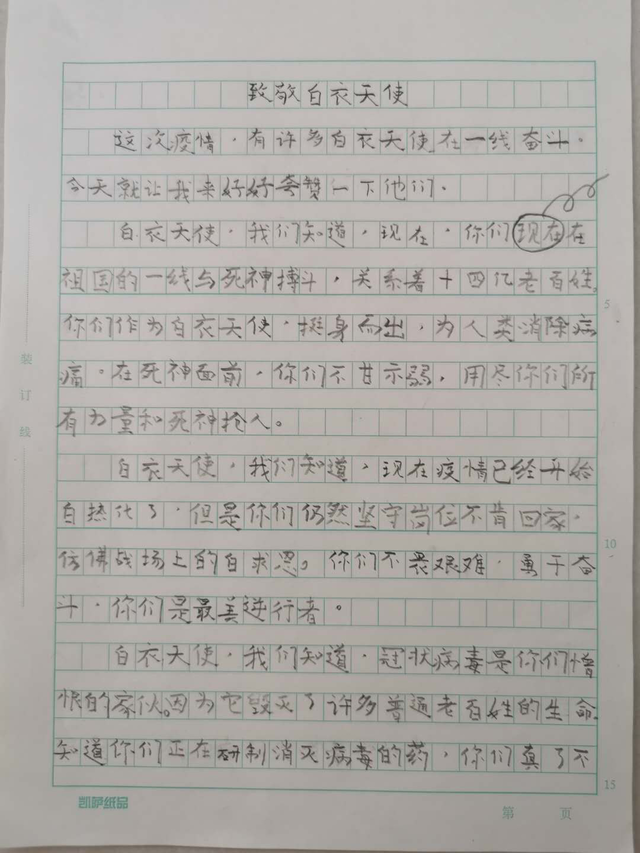 致敬白衣天使
这次疫情，有许多白衣天使在一线奋斗。
今天就让我来好好夸赞一下他们。
白衣天使，我们知道，现在，你们现在在
祖国的一线与死神搏斗，关系着十四亿老百姓。
你们作为白衣天使，挺身而出，为人类消除病
痛。在死神面前，你们不甘示弱，用尽你们所
有力量和死神抢人。
白衣天使，我们知道，现在疫情已经开始
白热化了，但是你们仍然坚守岗位不肯回家。
仿佛战场上的白求恩，你们不畏艰难，勇于奋
斗，你们是最美逆行者。
白衣天使，我们知道，冠状病毒是你们憎
恨的家伙。因为它毁灭了许多普通老百姓的生命。
知道你们正在研制消灭病毒的药，你们真了不
装
订
线
5
10
15
凯萨纸品
第 页